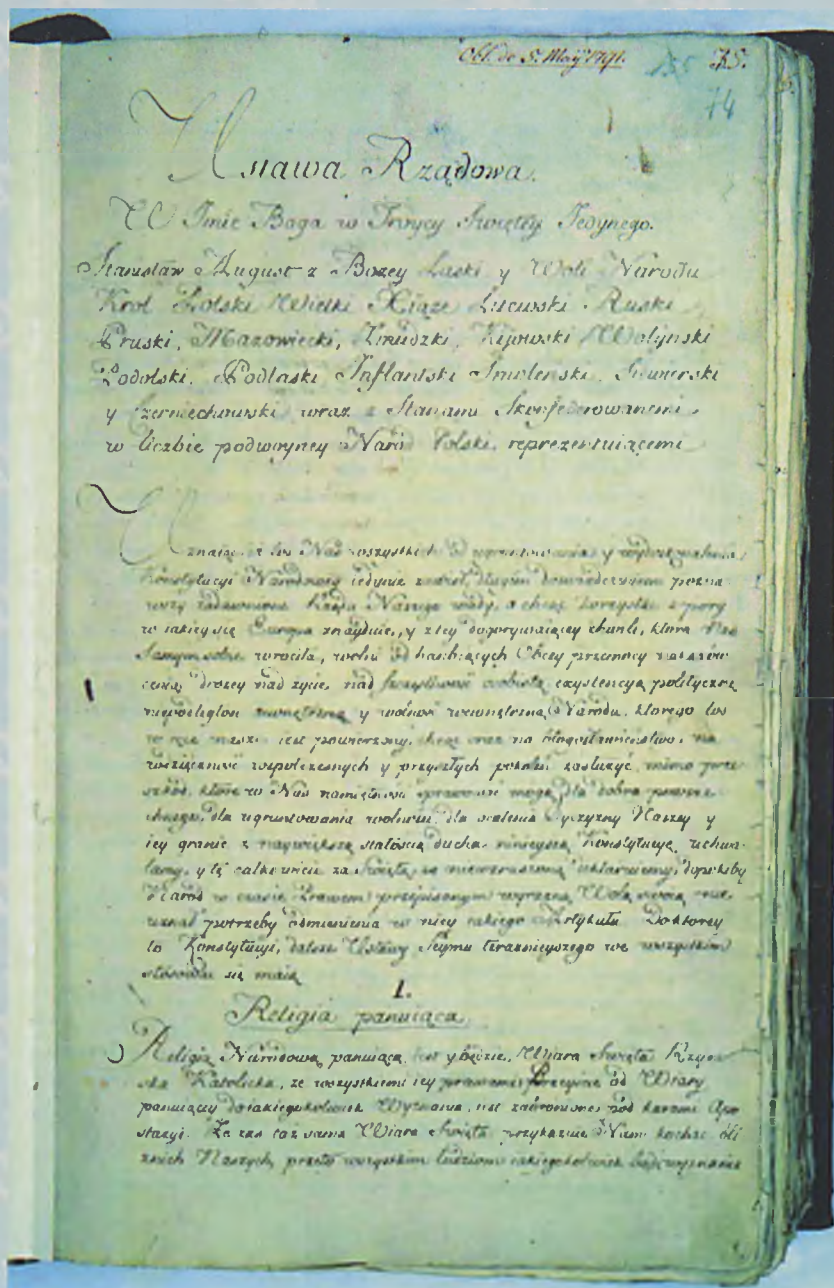 Obl. de 5. Maij 1791. 135 75.
74
Ustawa Rządowa.
W Imie Boga w Troycy Swiętey Jedynego.
Stanisław August z Bozey Łaski y Woli Narodu
Krol Polski Wielki Xiąze Litewski Ruski
Pruski, Mazowiecki, Zmudzki, Kijowski Wołyński
Podolski, Podlaski Inflantski Smolenski, Siewierski
y Czerniechowski wraz z Stanami Skonfederowanemi
w liczbie podwoyney Naród Polski reprezentuiącemi
Uznaiąc, iz los Nas wszystkich od ugruntowania y wydoskonalenia
Konstytucyi Narodowey iedynie zawisł, długim doswiadczeniem pozna
wszy zadawnione Rządu Naszego wady, a chcąc korzystać z pory
w iakiey się Europa znayduie, y z tey dogorywaiącey chwili, ktora Nas
samym sobie wrociła, wolni od hanbiących Obcey przemocy nakazów
ceniąc drozey nad zycie, nad szczęsliwość osobistą exystencyą polityczną
niepodległość zewnętrzną y wolność wewnętrzną Narodu, ktorego los
w ręce nasze iest powierzony, chcąc oraz na błogosławieństwo, na
wdzięczność wspołczesnych y przyszłych pokoleń zasłuzyć, mimo prze
szkód, ktore w Nas namiętności sprawować mogą, dla dobra powsze
chnego, dla ugruntowania wolności, dla ocalenia Oyczyzny Naszey y
iey granic z naywiększą stałością ducha, ninieyszą Konstytucyę uchwa
lamy, y tę całkowicie za świętą, za niewzruszoną deklaruiemy, dopokiby
Naród w czasie Prawem przepisanym wyrazną Wolą swoią nie
uznał potrzeby odmienienia w niey iakiego Artykułu. Do ktorey
to Konstytucyi, dalsze Ustawy Seymu teraznieyszego we wszystkim
stósować się maią
I.
Religia panuiąca
Religią Národową panuiącą iest y będzie, Wiara Swięta Rzym
ska Katolicka, ze wszystkiemi iey prawami. Przeyscie od Wiary
panuiącey do iakiegokolwiek Wyznania, iest zabronione pod karami Apo
stazyi. Ze zas taz sama Wiara Swięta przykazuie Nam kochać bli
znich Naszych, przeto wszystkim ludziom iakiegokolwiek bądź wyznania